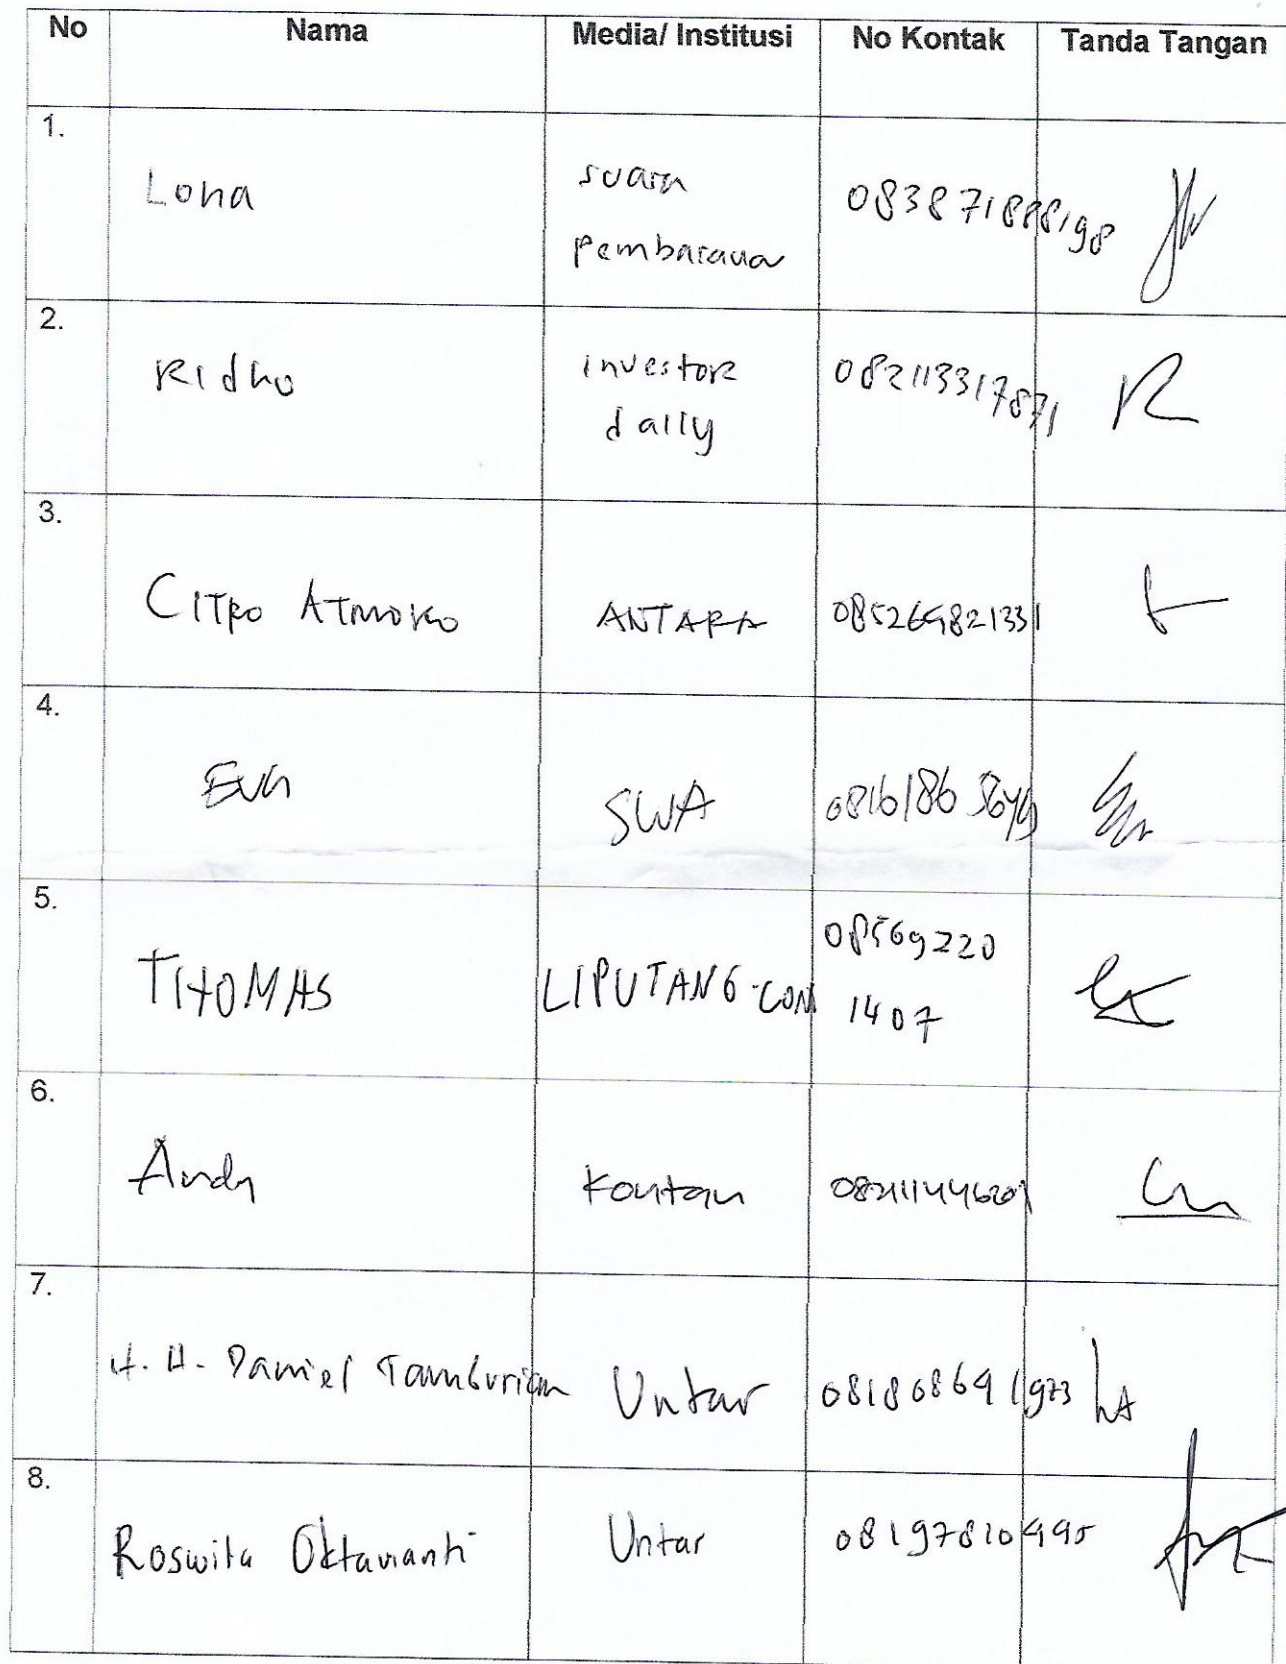 No Nama Media/ Institusi No Kontak Tanda Tangan
1.
Lona suara 083871888198
pembaraua
2.
Ridho investor 082113317871
daily
3.
CITRO ATMOKO ANTARA 085269821331
4.
Eva SWA
5.
THOMAS LIPUTAN6.COM 08569220
1407
6.
Andy Kontan
7.
H. H. Daniel Tamburian Untar 081808691973
8.
Roswita Oktavianti Untar 08197810995